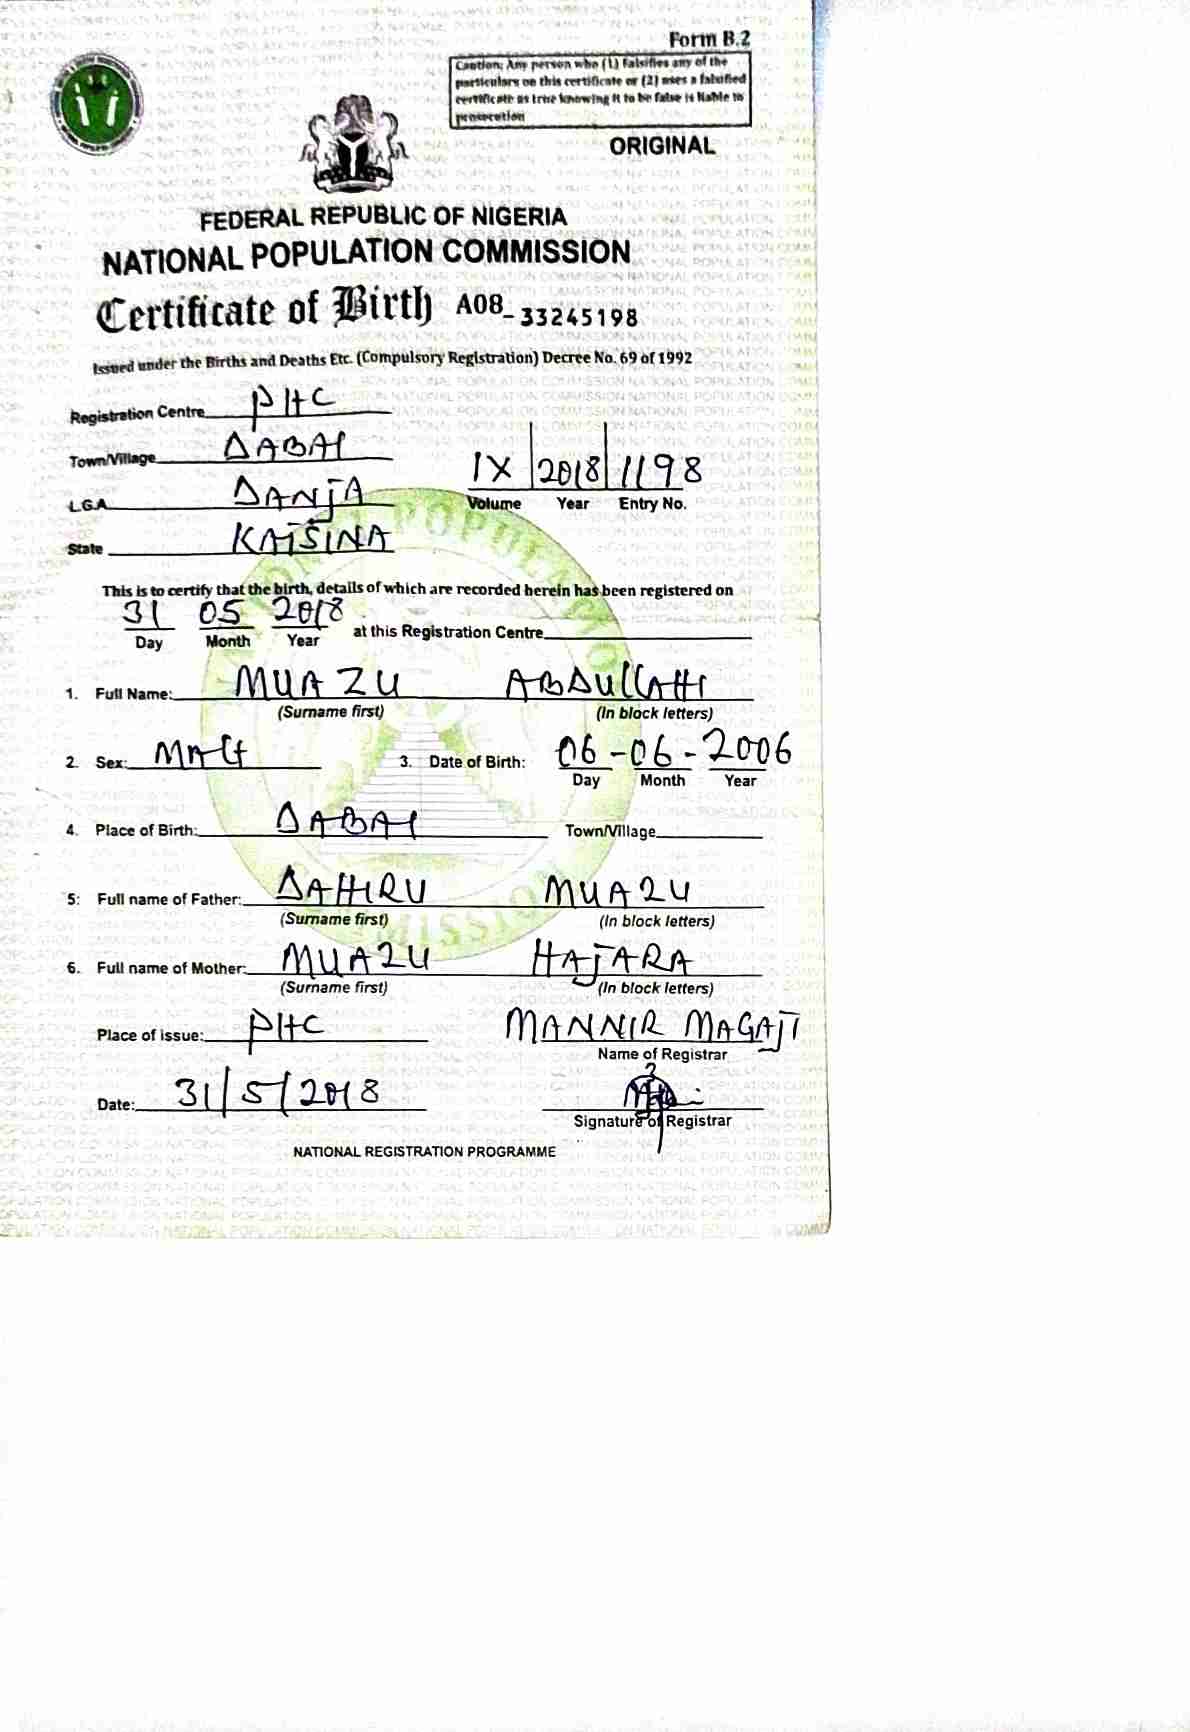 Form B.2
Caution: Any person who (1) Falsifies any of the
particulars on this certificate or (2) uses a falsified
certificate as true knowing it to be false is liable to
prosecution
ORIGINAL
FEDERAL REPUBLIC OF NIGERIA
NATIONAL POPULATION COMMISSION
Certificate of Birth A08_33245198
Issued under the Births and Deaths Etc. (Compulsory Registration) Decree No. 69 of 1992
Registration Centre PHC
Town/Village DABAI
IX 2018 1198
Volume Year Entry No.
L.G.A DANJA
State KATSINA
This is to certify that the birth, details of which are recorded herein has been registered on
31 05 2018 at this Registration Centre
Day Month Year
1. Full Name: MUAZU ABDULLAHI
(Surname first) (In block letters)
2. Sex: MALE 3. Date of Birth: 06-06-2006
Day Month Year
4. Place of Birth: DABAI Town/Village
5: Full name of Father: DAHIRU MUAZU
(Surname first) (In block letters)
6. Full name of Mother: MUAZU HAJARA
(Surname first) (In block letters)
Place of issue: PHC MANNIR MAGAJI
Name of Registrar
Date: 31/5/2018
Signature of Registrar
NATIONAL REGISTRATION PROGRAMME